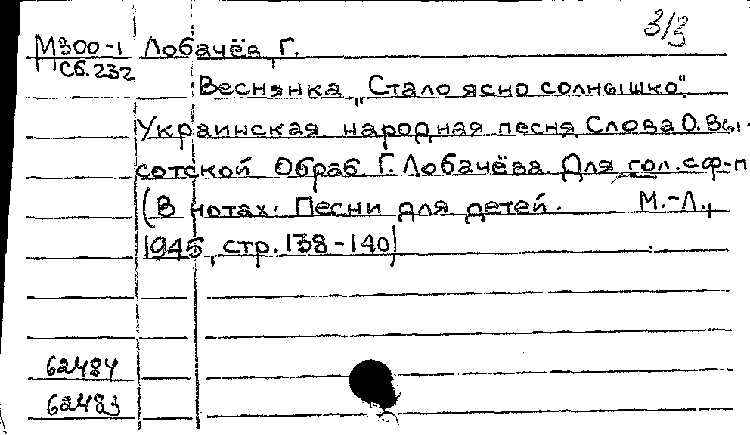 3/3
М300-1 Лобачёв, Г.
Сб.232
Веснянка „Стало ясно солнышко".
Украинская народная песня. Слова О. Вы-
сотской Обраб. Г. Лобачёва. Для гол. с ф-п
(В нотах: Песни для детей. М.-Л.,
1945, стр. 138-140)
62484
62483